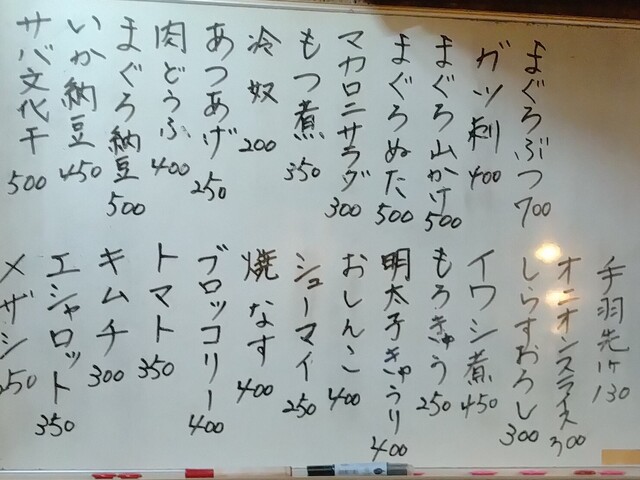 まぐろぶつ 700
ガツ刺 400
まぐろ山かけ 500
まぐろぬた 500
マカロニサラダ 300
もつ煮 350
冷奴 200
あつあげ 250
肉どうふ 400
まぐろ納豆 500
いか納豆 450
サバ文化干 500
手羽先1ケ 130
オニオンスライス 300
しらすおろし 300
イワシ煮 450
もろきゅう 250
明太子きゅうり 400
おしんこ 400
シューマイ 250
焼なす 400
ブロッコリー 400
トマト 350
キムチ 300
エシャロット 350
メザシ 250